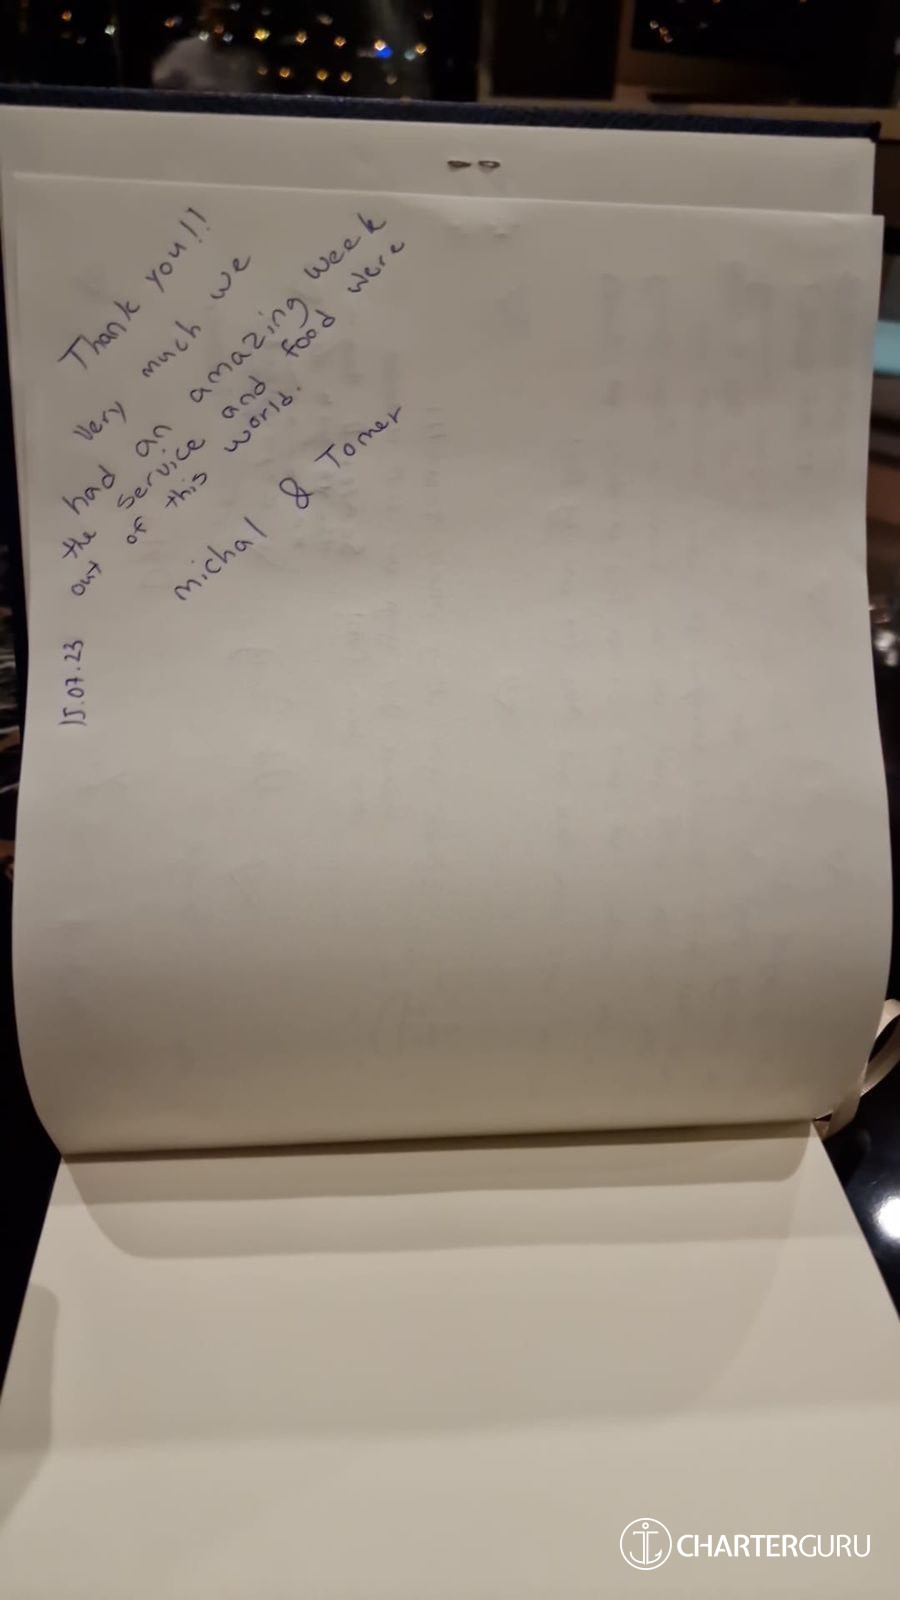 Thank you!!
very much we
had an amazing week
the service and food were
out of this world.
michal & Tomer
15.07.23
CHARTERGURU